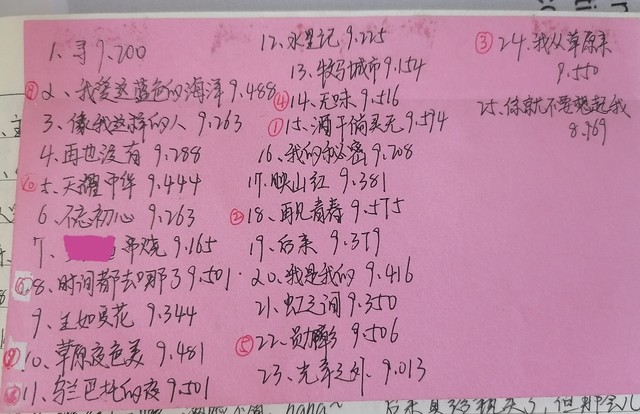 1、寻 9.200
⑧ 2、我爱这蓝色的海洋 9.488
3、像我这样的人 9.263
4、再也没有 9.288
⑩ 5、天耀中华 9.444
6、不忘初心 9.263
7、 串烧 9.165
⑥ 8、时间都去哪了 9.501
9、生如夏花 9.344
⑨ 10、草原夜色美 9.481
11、乌兰巴托的夜 9.501
12、水星记 9.225
13、牧马城市 9.154
④ 14、无味 9.516
① 15、酒干倘卖无 9.594
16、我的秘密 9.208
17、映山红 9.381
② 18、再见青春 9.575
19、后来 9.379
20、我是我的 9.416
21、虹之间 9.350
⑤ 22、 9.506
23、光年之外 9.013
③ 24、我从草原来
9.550
25、你就不要想起我
8.969
haha~